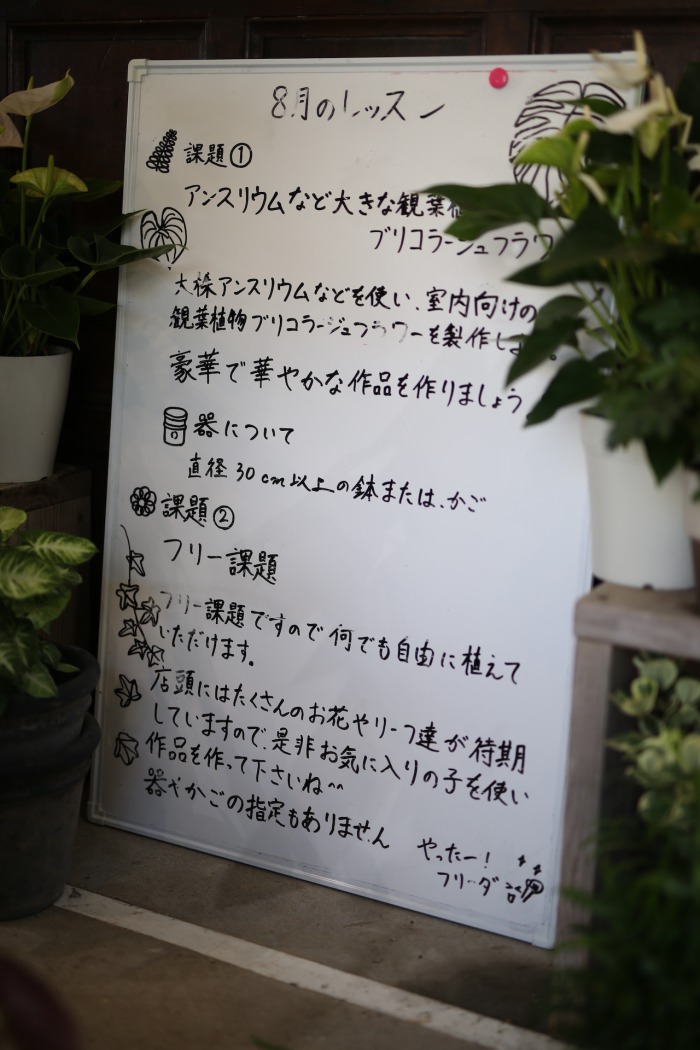 8月のレッスン
課題①
アンスリウムなど大きな観葉
ブリコラージュフラワ
大きなアンスリウムなどを使い、室内向けの
観葉植物ブリコラージュフラワーを製作し
豪華で華やかな作品を作りましょう
器について
直径30cm以上の鉢または、かご
課題②
フリー課題
フリー課題ですので何でも自由に植えて
いただけます。
店頭にはたくさんのお花やリーフ達が待期
していますので、是非お気に入りの子を使い
作品を作って下さいね^^
器やかごの指定もありません
やったー!
フリーダ